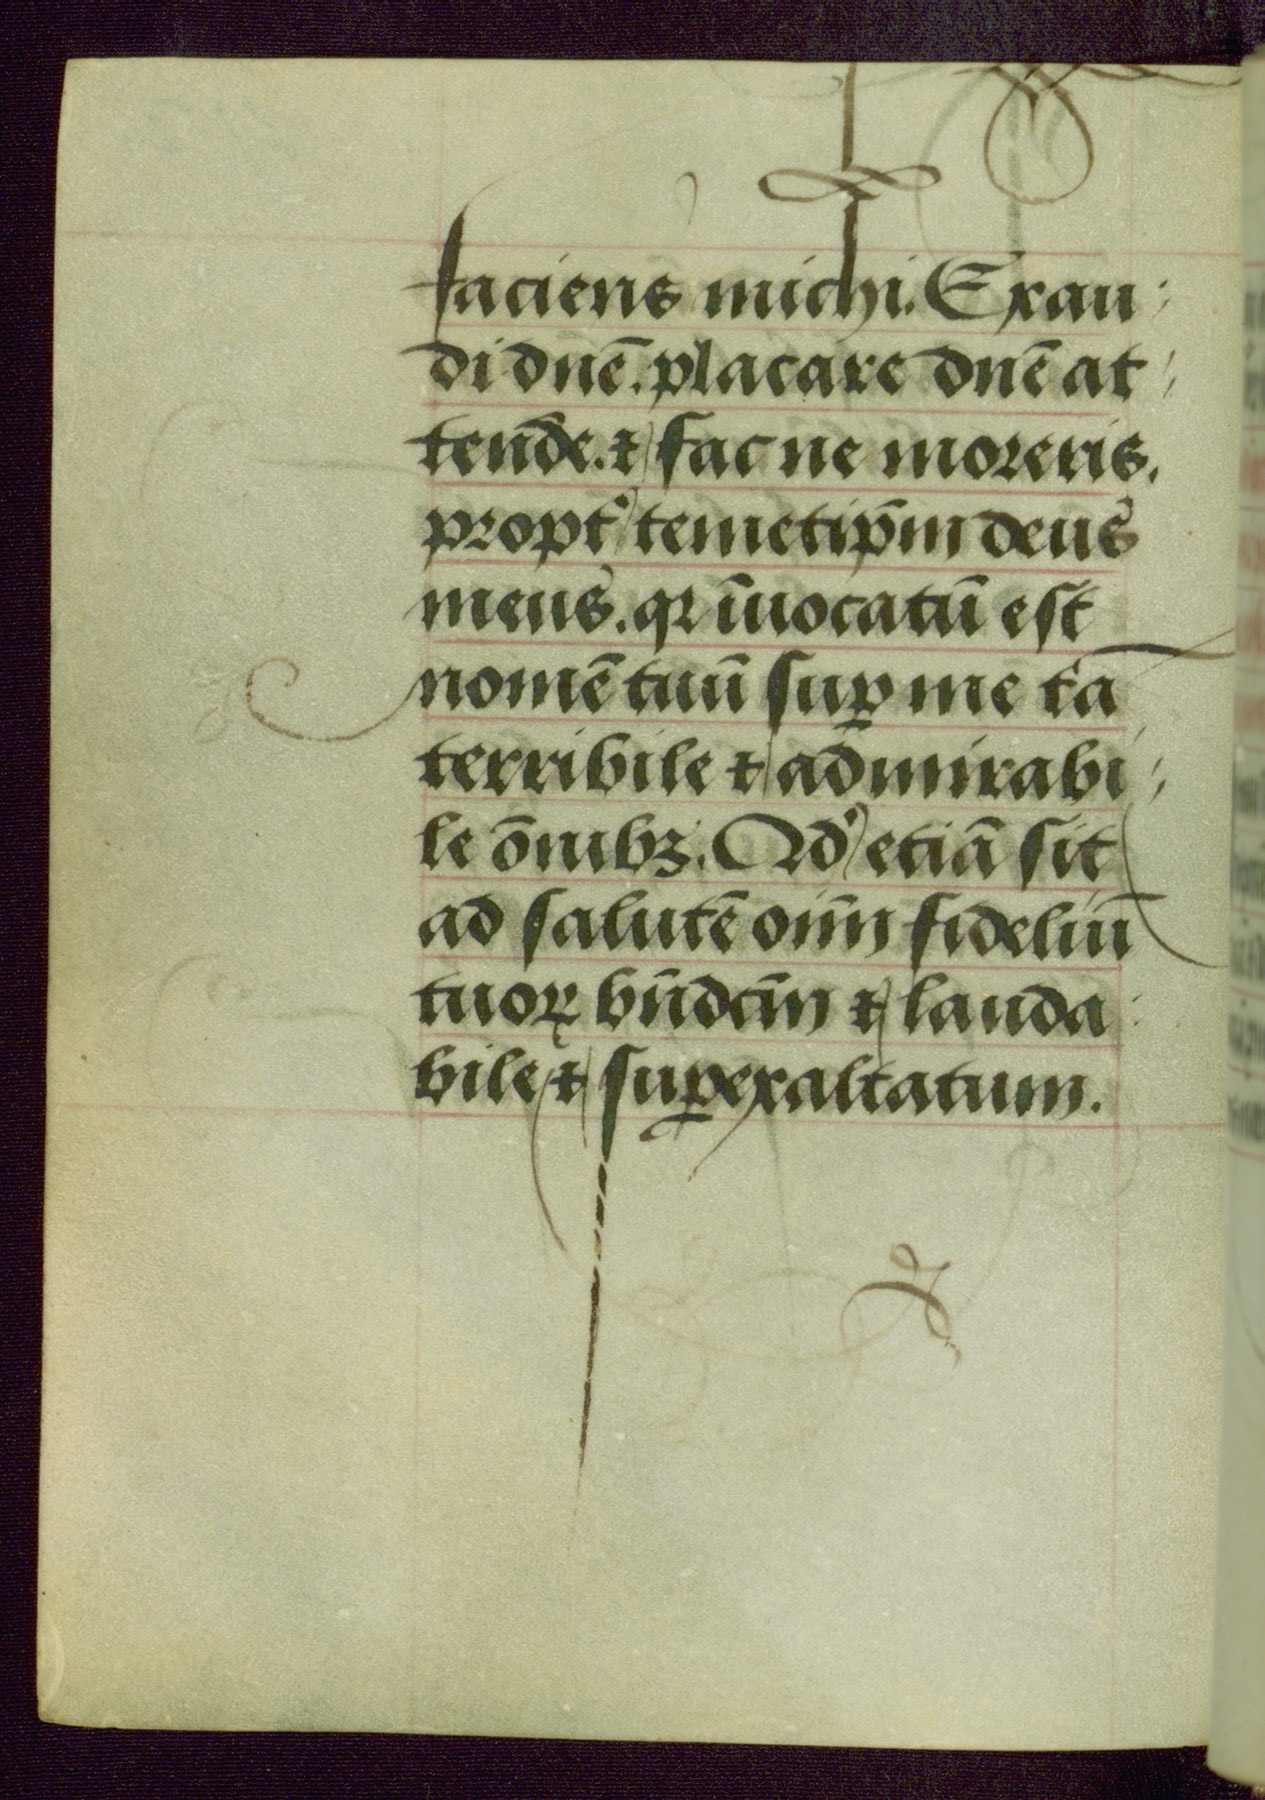 faciens michi. Exau
di dnē. placare dnē at
tendē. ⁊ fac ne moreris.
propt̾ temetip̄m deus
meus. qꝛ īuocatū est
nomē tuū suꝑ me tā
terribile ⁊ admirabi
le ōnibꝫ. Qd̾ etiā sit
ad salutē oīm fideliū
tuoꝝ bn̄dcīm ⁊ lauda
bile ⁊ suꝑexaltatum.